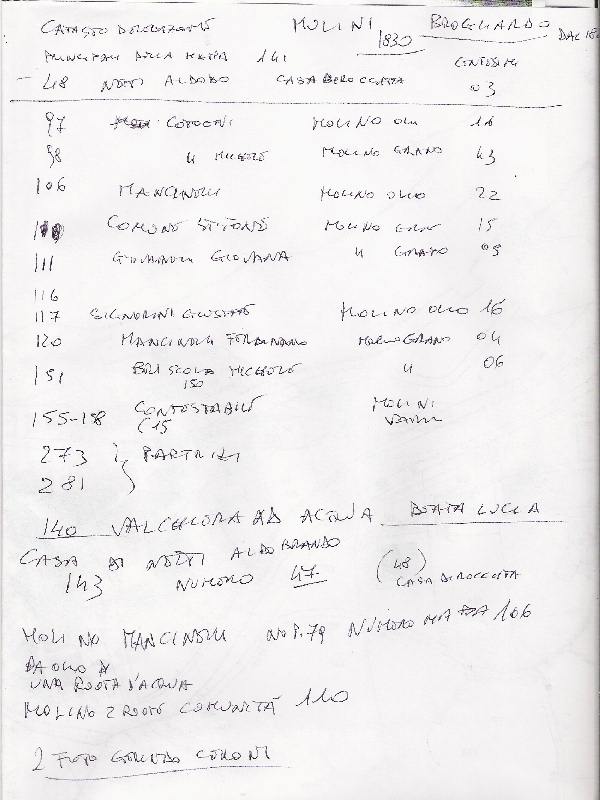 CATASTO MOLINI BROGLIARDO
1830 DAL 18
PARTICELLE DELLA MAPPA 141 CENTESIMI
48 NOTTI ALDOBR CASA DIROCCATA 03
97 CORDONI MOLINO OLIO 16
98 " MICHELE MOLINO GRANO 43
106 MANCINELLI MOLINO OLIO 22
110 COMUNE MOLINO GRANO 15
111 GIOVANNELLI GIOVANNA " GRANO 05
116
117 SIGNORINI GIUSEPPE MOLINO OLIO 16
120 MANCINELLI FERDINANDO MOLINO GRANO 04
151 BRISCOLA MICHELE " 06
150
155-158 CONTESTABILE MOLINI
C15
273 PARTRIZI
281
140 VALCHIERA AD ACQUA BEATA LUCIA
CASA DI NOTTI ALDOBRANDO
143 NUMERO 47 (48)
CASA DIROCCATA
MOLINO MANCINELLI NO P. 79 NUMERO MAPPA 106
DA OLIO A
UNA RUOTA D'ACQUA
MOLINO 2 RUOTE COMUNITÀ 110
2 FOTO